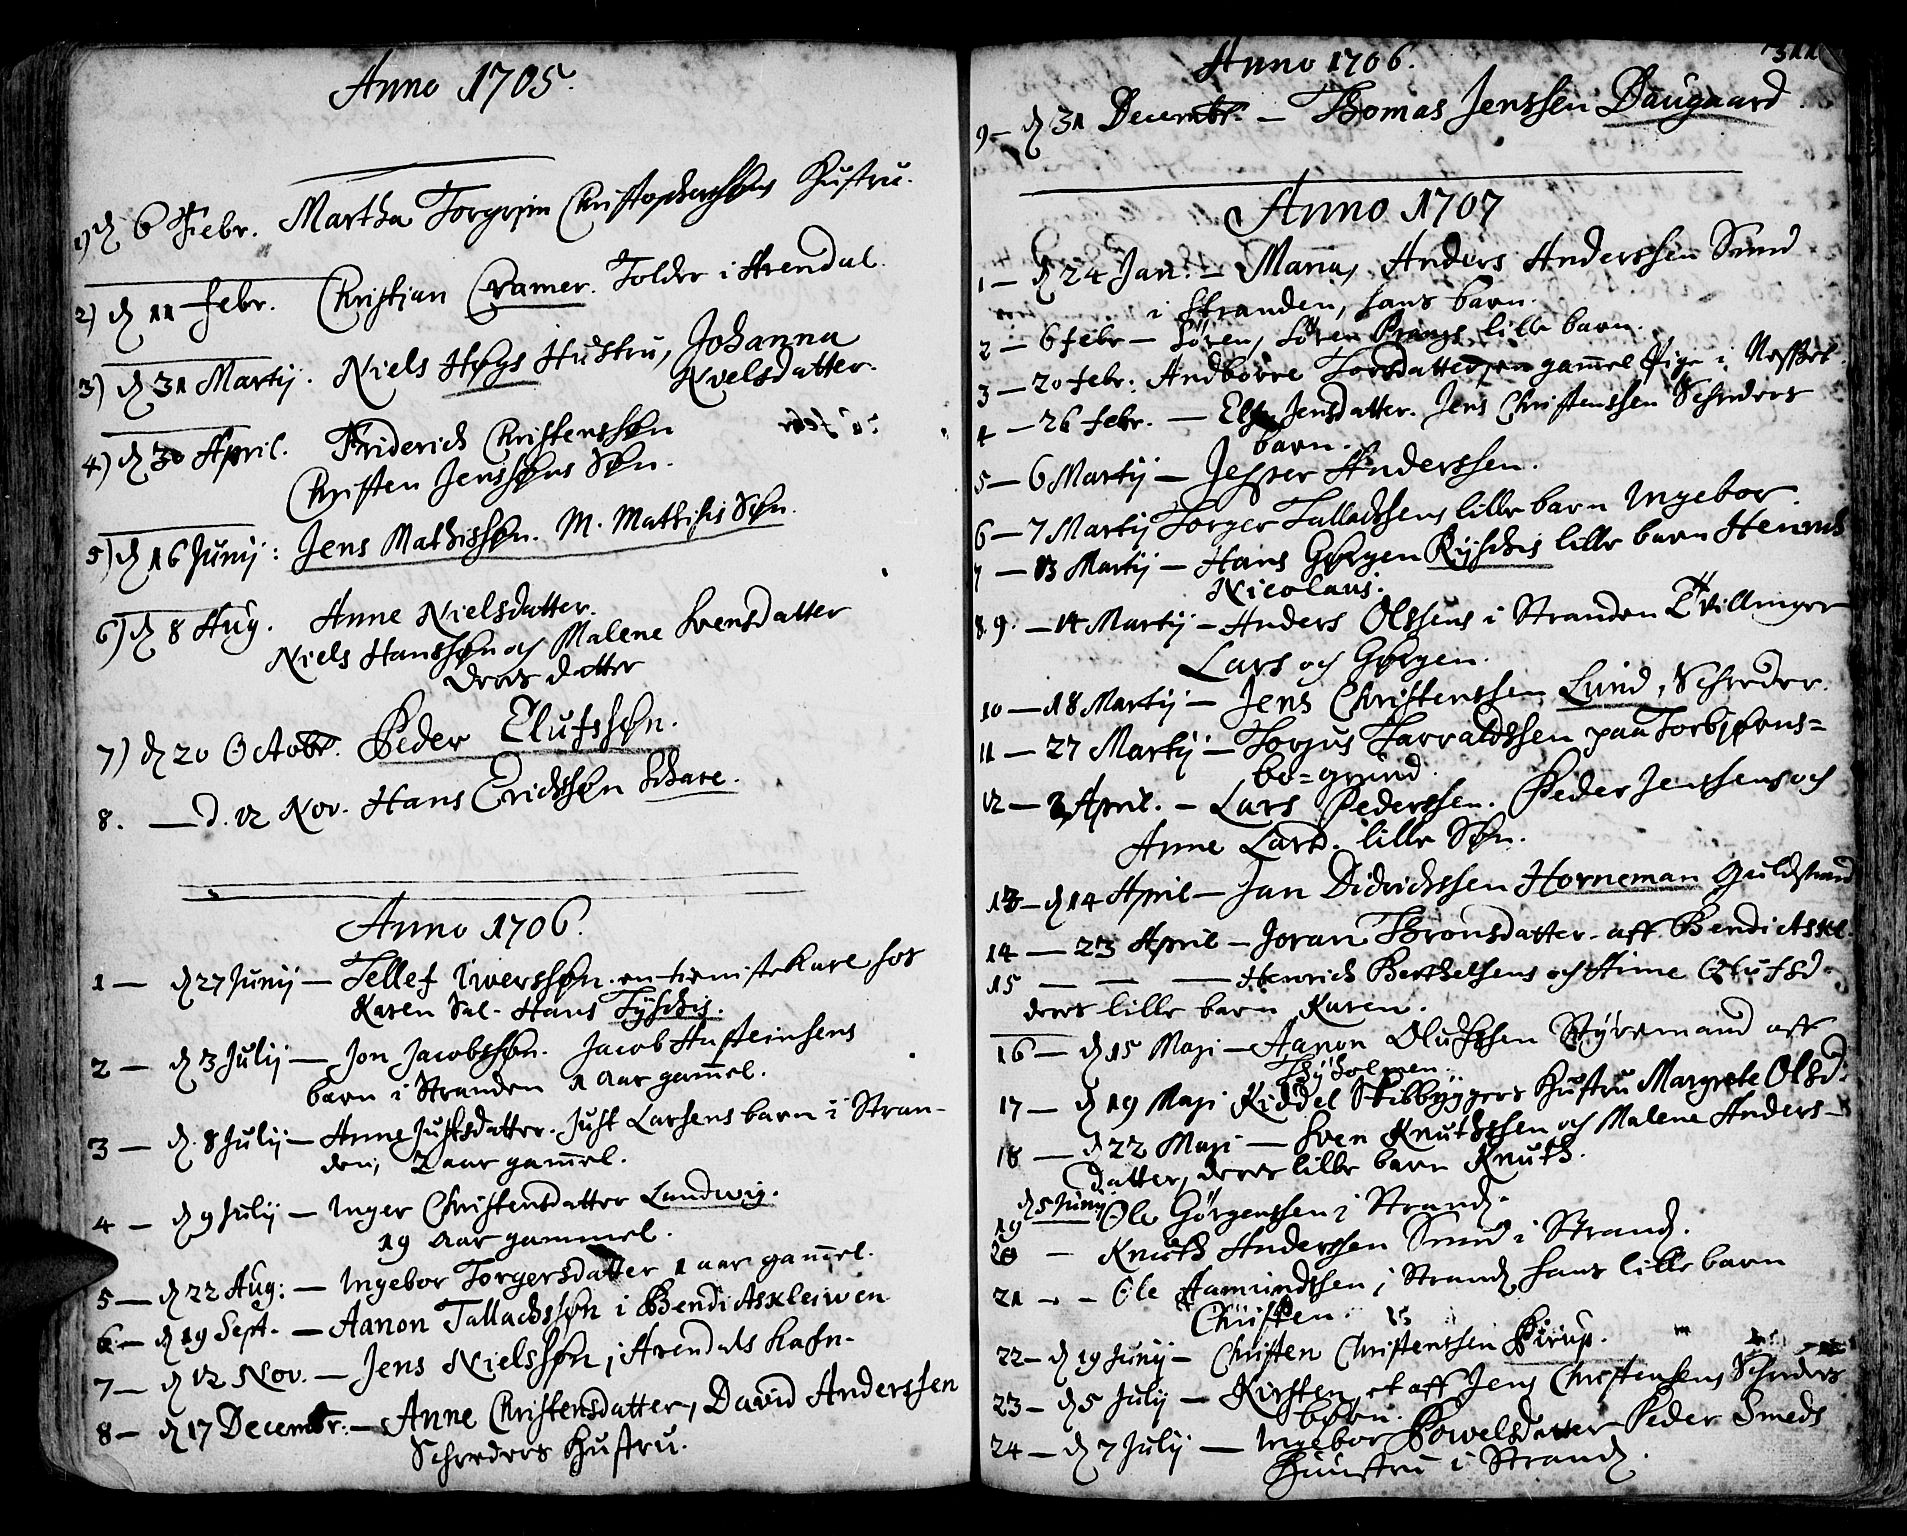 Anno 1705.
1) d 6 Febr. Martha Torgrim Christophersøns Hustru.
2) d 11 febr. Christian Cramer. Tolder i Arendal.
3) d 31 Martij. Niels Høgs Hustru, Johanna
Nielsdatter.
4) d 30 April. Friderich Christenssøn
Christen Jenssøns Søn.
5) d 16 Junij: Jens Mathissøn. M. Mathisis Søn.
6) d 8 Aug. Anne Nielsdatter.
Niels Hanssøn och Malene Svensdatter
deris datter
7) d 20 Octobr. Peder Elufssøn.
8. — d. 12 Nov. Hans Erichssøn Schare.
Anno 1706.
1 — d 27 Junij — Tellef Iverssøn. en tieniste Karl hos
Karen Sal. Hans Fyschis.
2 — d 3 Julij — Jon Jacobssøn. Jacob Austeinsens
barn i Stranden 1 Aar gam̄el.
3 — d. 8 Julij — Anne Justsdatter. Just Larsens barn i Stran-
den, 2 aar gam̄el.
4 — d 9 Julij — Inger Christensdatter Lundwig.
19 Aar gammel.
5 — d 22 Aug: — Ingebor Torgersdatter 1 aar gam̄el.
6 — d 19 Sept. — Aanon Talladssøn i Bendicts Kleiwen
7 — d 12 Nov. — Jens Nielssøn i Arendals hafn.
8 — d 17 Decembr: — Anne Christensdatter, David Anderssen
Schreders Hustru.
311
Anno 1706.
9 — d 31 Decembr. — Thomas Jenssen Daugaard.
Anno 1707
1 — d 24 Jan: — Maria, Anders Anderssen Smid
i Stranden, hans barn.
2 — 6 febr — Søren, Søren Prangs lille barn.
3 — 20 febr: Andborre Torsdatter, en gam̄el Pige i
4 — 26 febr. — Else Jensdatter. Jens Christenssen Schreders
barn.
5 — 6 Martij — Jesper Anderssen.
6 — 7 Martij Torger Talladssens lille barn Ingebor.
7 — 13 Martij — Hans Gørgen Ryschis lille barn Henrich
Nicolaus.
8. 9. — 14 Martij — Anders Olssens i Stranden Tvillinger
Lars och Gørgen.
10 — 18 Martij — Jens Christenssen Lund, Schreder.
11 — 27 Martij — Torjus Tarraldssen paa Torbjørns=
bo=grund.
12 — 2 April. — Lars Pederssen. Peder Jenssens och
Anne Larsd. lille Søn.
13 — d 14 April — Jan Didrichssen Horneman Guldsmed
14 — 23 April — Joran Thronsdatter aff Bendictskl.
15 — — — Henrich Berthelsens och Anne Olufsd.
deres lille barn Karen.
16 — d 15 Maji — Aanon Olufssen Styremand aff
Thyholmen.
17 — d 19 Maji Kiddel Skibbyggers Hustru Margrete Olsd.
18 — d 22 Maji — Sven Knutssen och Malene Anders-
datter, deres lille barn Knuth.
d 5 Junij
19 Ole Gørgenssen i Strand.
20 — Knuth Anderssen Smid i Strand.
21 — Ole Aamundssen i Strand, hans lille barn
Christen.
22 — d 19 Junij — Christen Christenssen Pirup.
23 — d 5 Julij — Kirsten, et aff Jens Christensens Schreders
børn.
24 — d 7 Julij — Ingebor Powelsdatter Peder Smeds
Huustru i Strand.